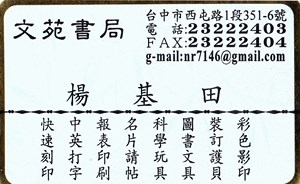 文苑書局
台中市西屯路1段351-6號
電話:23222403
FAX:23222404
g-mail:nr7146@gmail.com
楊基田
快速刻印
中英打字
報表印刷
名片請帖
科學玩具
圖書文具
裝訂護貝
彩色影印